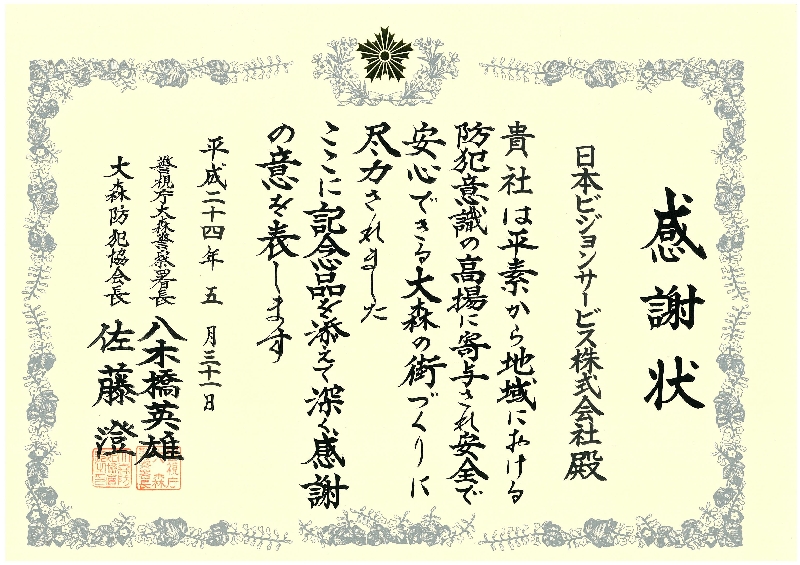 感謝状
日本ビジョンサービス株式会社殿
貴社は平素から地域における
防犯意識の高揚に寄与され安全で
安心できる大森の街づくりに
尽力されました
ここに記念品を添えて深く感謝
の意を表します
平成二十四年五月三十一日
警視庁大森警察署長 八木橋英雄
大森防犯協会長 佐藤澄